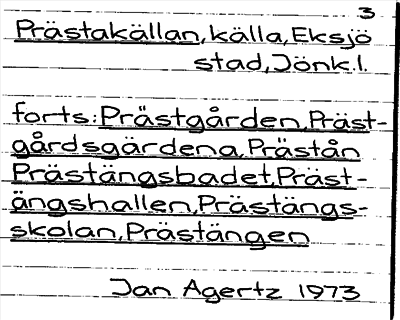 3
Prästakällan, källa, Eksjö
stad, Jönk.l.
forts: Prästgården, Präst-
gårdsgärdena, Prästån
Prästängsbadet, Präst-
ängshallen, Prästängs-
skolan, Prästängen
Jan Agertz 1973